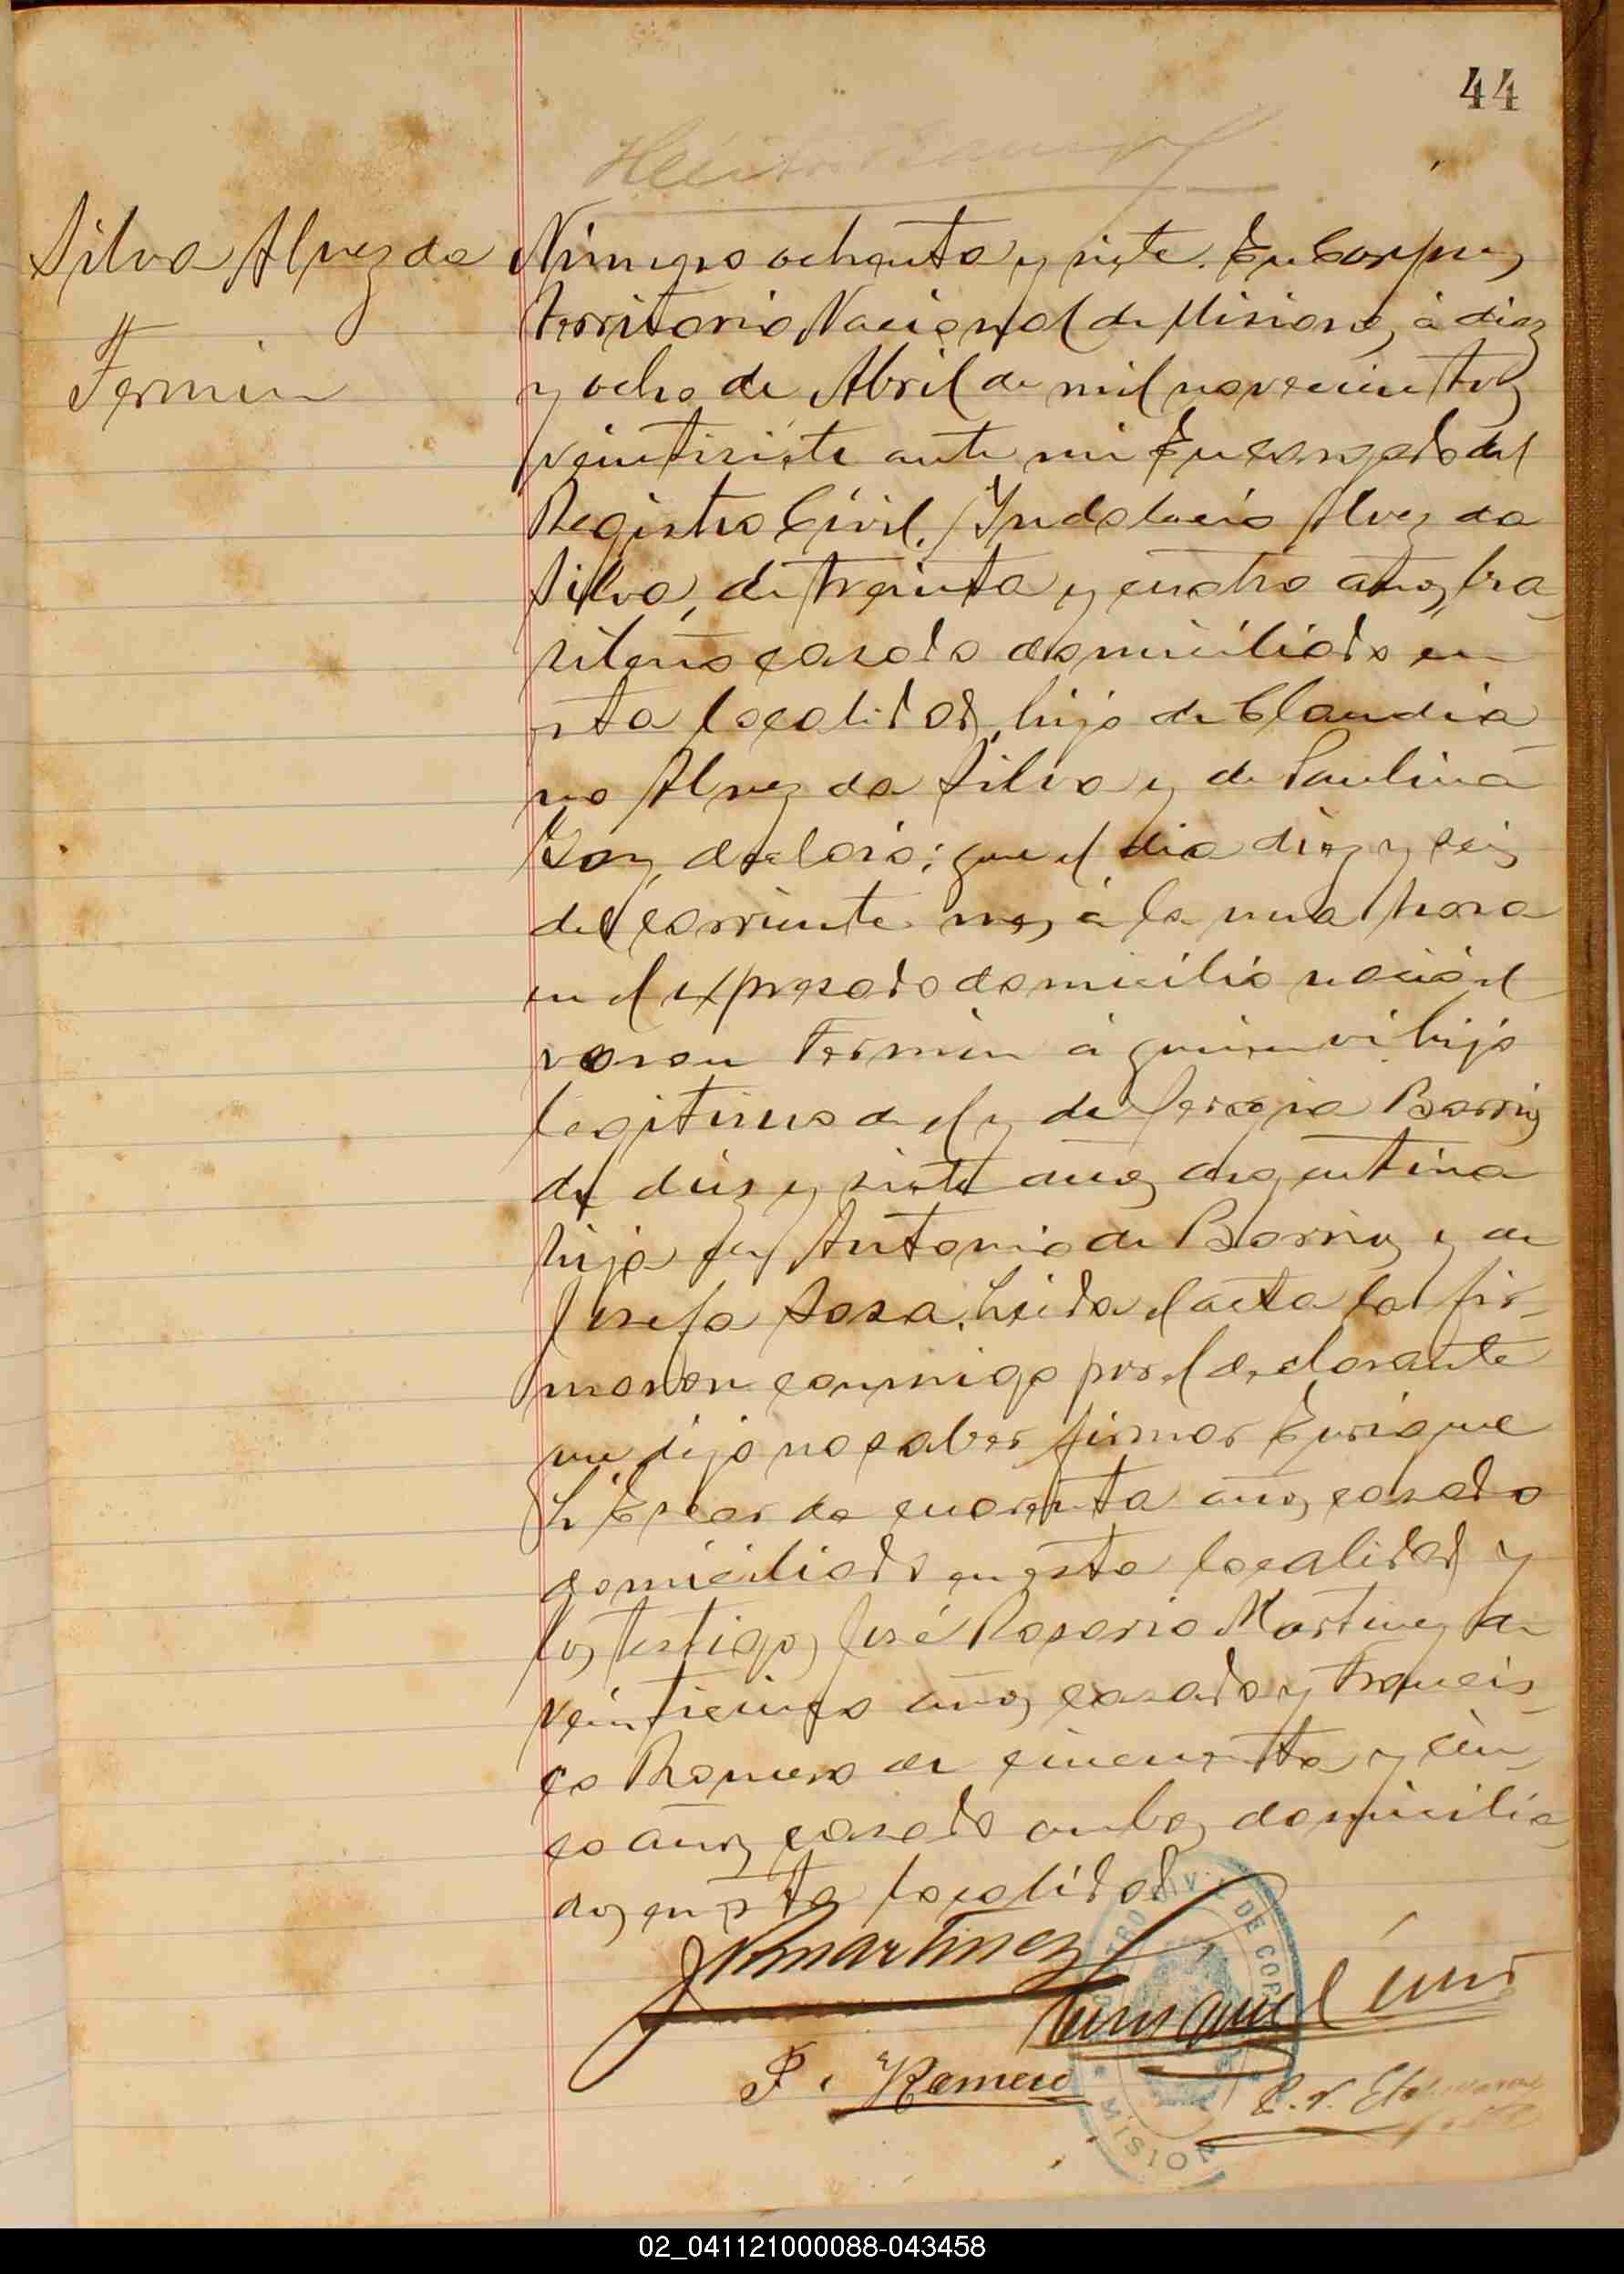 44
Silva Alvez da
Fermin
Número ochenta y siete. En Corpus,
Territorio Nacional de Misiones, á diez
y ocho de Abril de mil novecientos
veintisiete ante mi Encargado del
Registro Civil, Yndalecio Alvez da
Silva, de treinta y cuatro años, bra
sileño casado domiciliado en
esta localidad, hijo de Claudia
no Alvez da Silva y de Paulina
declaró; que el dia diez y seis
del corriente mes, á la una hora
en el expresado domicilio nació el
varon Fermin á quien vi hijo
legitimo de el y de Barrios
de diez y siete años argentina
hija de Antonio de Barrios y de
Josefa Sosa. Leida el acta la fir-
maron conmigo por el declarante
que dijo no saber firmar Enrique
de cuarenta años, casado
domiciliado en esta localidad y
los testigos José Rosario Martinez de
veinticinco años, casado y Francis-
co Romero de cincuenta y cin
co años, casado ambos domicilia
dos en esta localidad
JRMartinez
F. Romero
REGISTRO CIVIL DE CORPUS
MISIONES
02_041121000088-043458